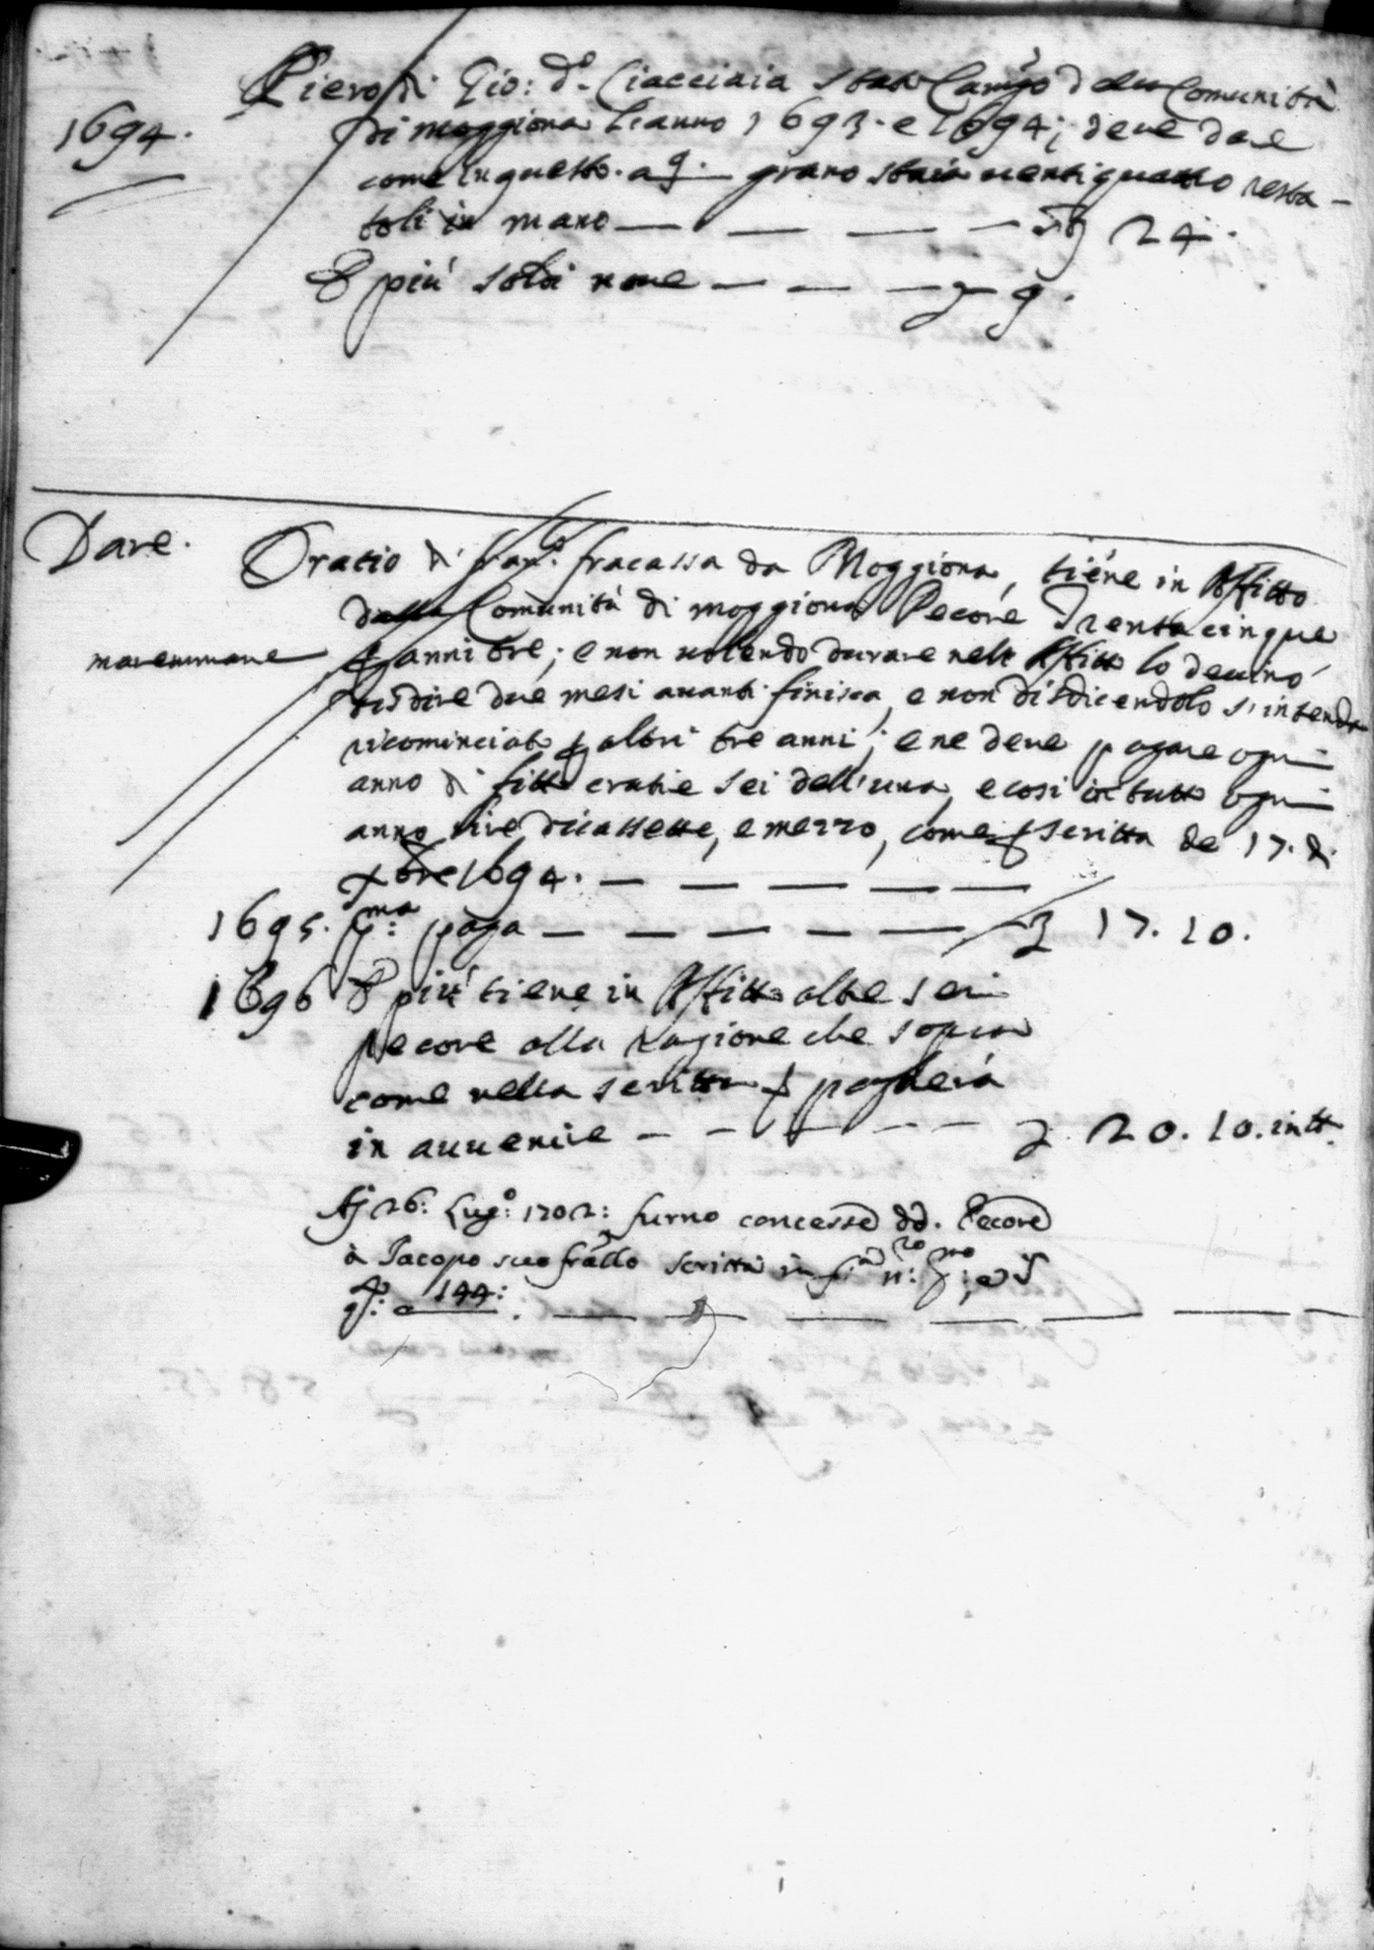 Piero di Gio: d.o Ciacciaia stato Camgo della Comunità
1694. di moggiona l'anno 1693. e 1694; deve dare
come in questo. a 9. grano staia uentiquattro resta-
toli in mano — — — — St 24.
E più soldi noue — — — 9.
Dare. Oratio di Fran.o fracassa da Moggiona, tiene in Affitto
dalla Comunità di moggiona Pecore Trentacinque
maremmane p anni tre; e non uolendo durare nell Affitto lo deuino
disdire due mesi auanti finisca, e non disdicendolo s'intenda
ricominciato p altri tre anni; e ne deue pagare ogni
anno di fitto cratie sei dell'una, e cosi in tutto ogni
anno lire dicassette, e mezzo, come p scritta de 17. di
Xbre 1694. — — — — —
1695. P:ma paga — — — — — 17. 10.
1696 E più tiene in Affitto altre sei
pecore alla ragione che sopra
come nella scritta p pagherà
in auuenire — — — — — 20. 10. in tt.
Aj 26: Lug:o 1702: furno concesse dd. Pecore
à Jacopo suo frãllo scritta in
a 144: